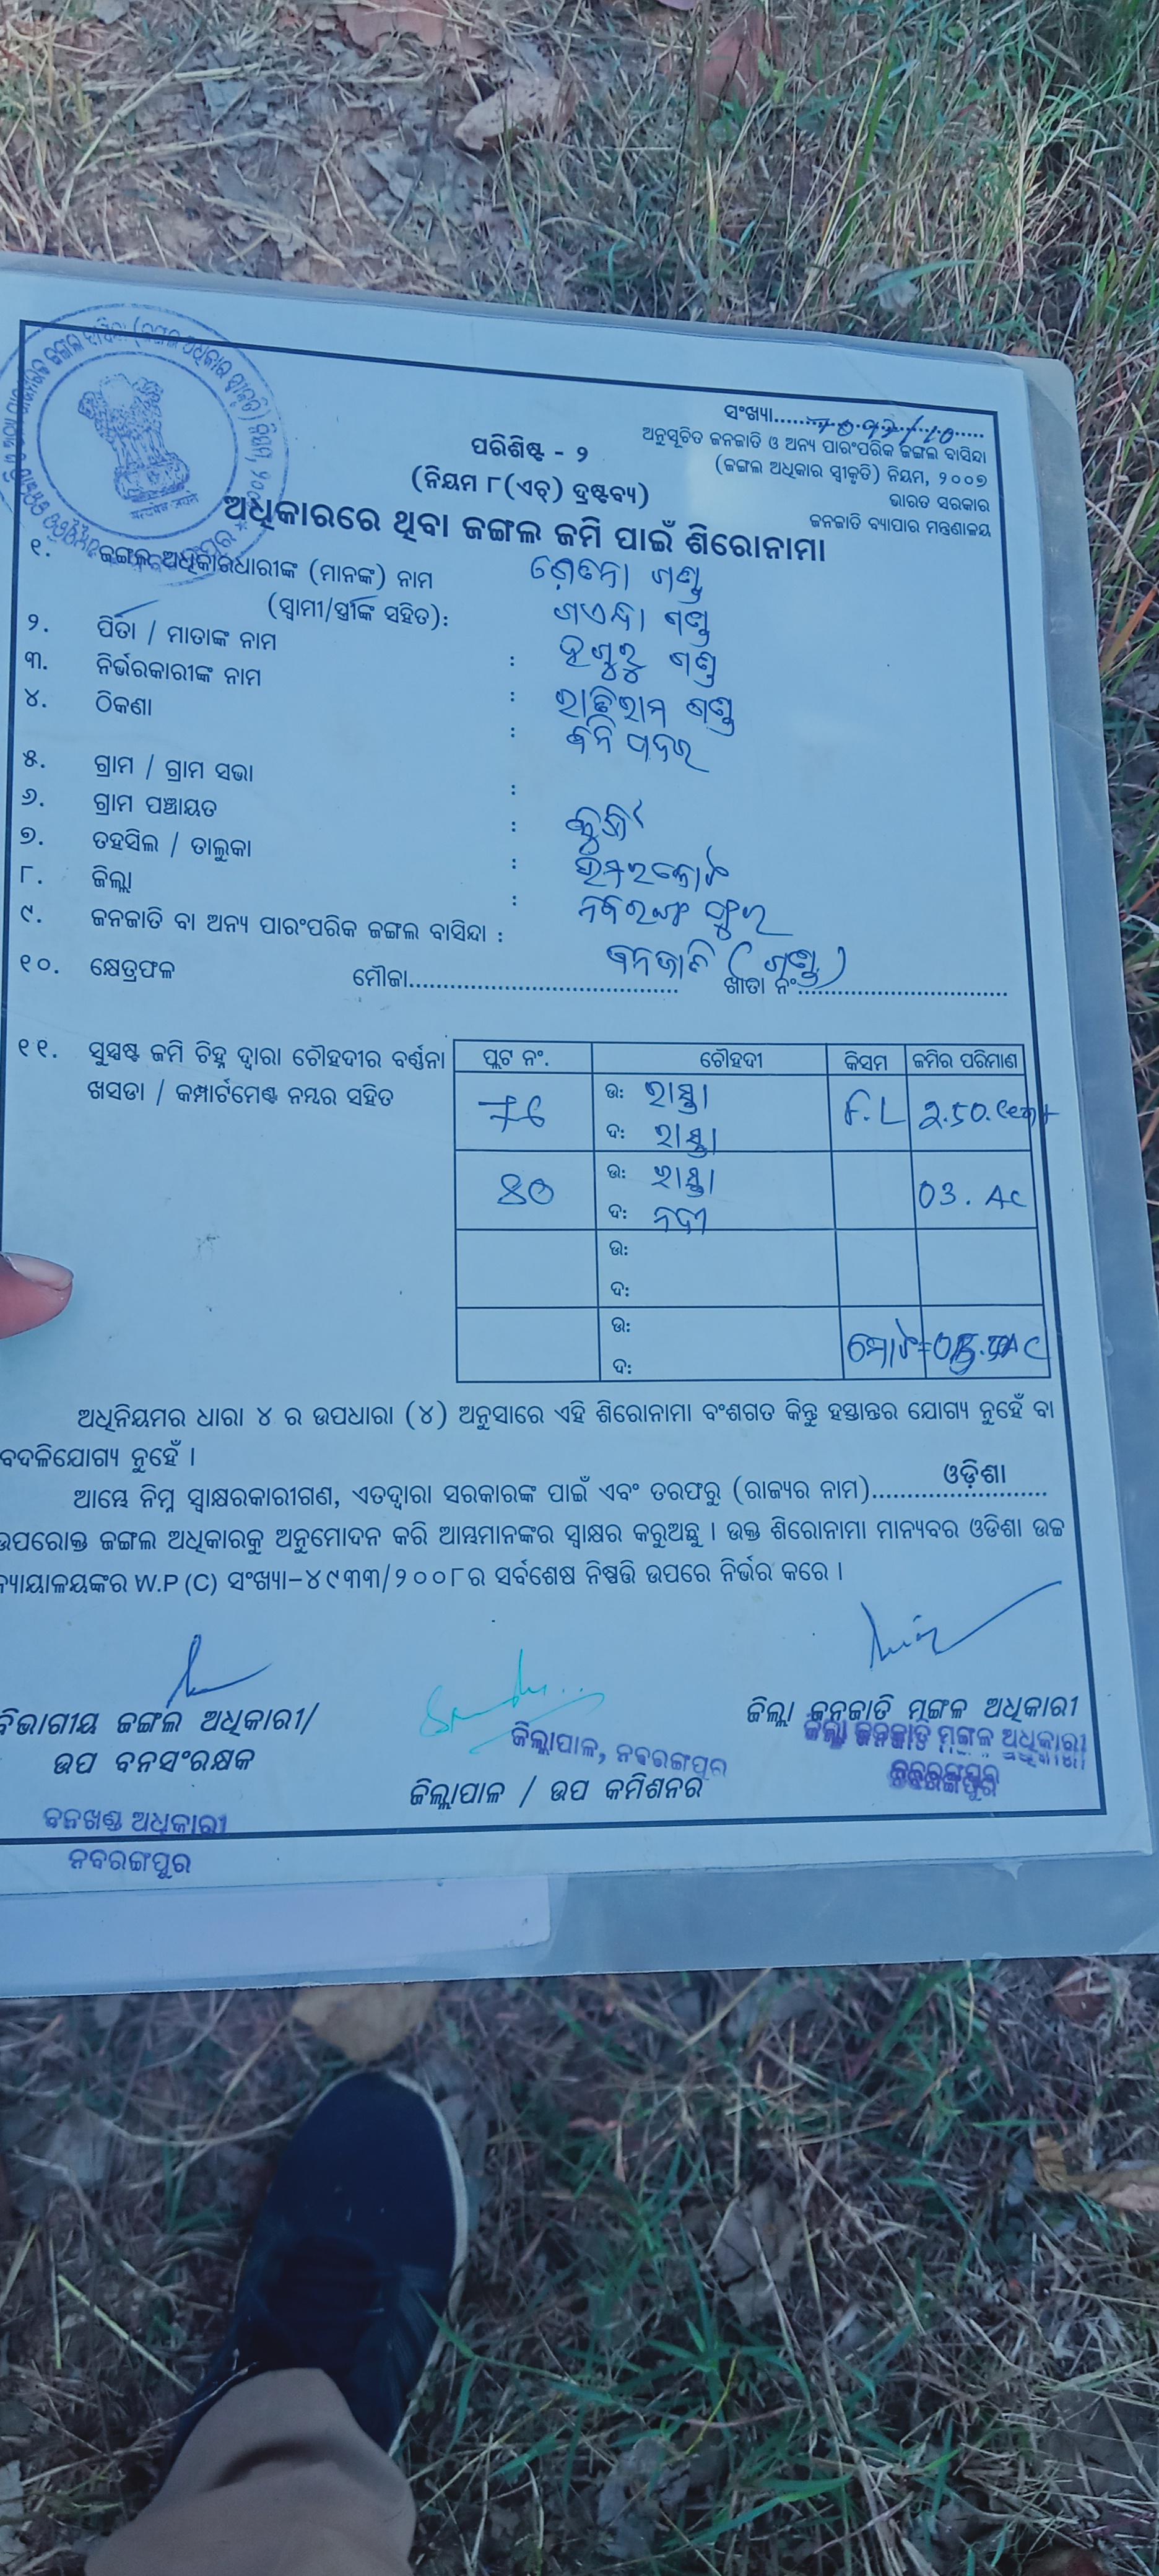 ସଂଖ୍ୟା
ଅନୁସୂଚିତ ଜନଜାତି ଓ ଅନ୍ୟ ପାରଂପରିକ ଜଙ୍ଗଲ ବାସିନ୍ଦା
(ଜଙ୍ଗଲ ଅଧିକାର ସ୍ୱୀକୃତି) ନିୟମ, ୨୦୦୭
ଭାରତ ସରକାର
ଜନଜାତି ବ୍ୟାପାର ମନ୍ତ୍ରଣାଳୟ
ପରିଶିଷ୍ଟ - ୨
(ନିୟମ ୮(ଏଚ୍) ଦ୍ରଷ୍ଟବ୍ୟ)
ଅଧିକାରରେ ଥିବା ଜଙ୍ଗଲ ଜମି ପାଇଁ ଶିରୋନାମା
୧. ଜଙ୍ଗଲ ଅଧିକାରଧାରୀଙ୍କ (ମାନଙ୍କ) ନାମ ଗଣ୍ଡ
(ସ୍ୱାମୀ/ସ୍ତ୍ରୀଙ୍କ ସହିତ): ଗଣ୍ଡ
୨. ପିତା / ମାତାଙ୍କ ନାମ : ଗଣ୍ଡ
୩. ନିର୍ଭରକାରୀଙ୍କ ନାମ : ଗଣ୍ଡ
୪. ଠିକଣା :
୫. ଗ୍ରାମ / ଗ୍ରାମ ସଭା :
୬. ଗ୍ରାମ ପଞ୍ଚାୟତ :
୭. ତହସିଲ / ତାଲୁକା :
୮. ଜିଲ୍ଲା : ନବରଙ୍ଗପୁର
୯. ଜନଜାତି ବା ଅନ୍ୟ ପାରଂପରିକ ଜଙ୍ଗଲ ବାସିନ୍ଦା : ଜନଜାତି (ଗଣ୍ଡ)
୧୦. କ୍ଷେତ୍ରଫଳ ମୌଜା ଖାତା ନଂ
୧୧. ସୁସ୍ପଷ୍ଟ ଜମି ଚିହ୍ନ ଦ୍ୱାରା ଚୌହଦୀର ବର୍ଣ୍ଣନା
ଖସଡା / କମ୍ପାର୍ଟମେଣ୍ଟ ନମ୍ବର ସହିତ
ପ୍ଲଟ ନଂ. ଚୌହଦୀ କିସମ ଜମିର ପରିମାଣ
76 ଉ: ରାସ୍ତା F.L 2.50. Cent
ଦ: ରାସ୍ତା
80 ଉ: ରାସ୍ତା 03. AC
ଦ: ନଦୀ
ଉ:
ଦ:
ଉ: ମୋଟ=
ଦ:
ଅଧିନିୟମର ଧାରା ୪ ର ଉପଧାରା (୪) ଅନୁସାରେ ଏହି ଶିରୋନାମା ବଂଶଗତ କିନ୍ତୁ ହସ୍ତାନ୍ତର ଯୋଗ୍ୟ ନୁହେଁ ବା
ବଦଳିଯୋଗ୍ୟ ନୁହେଁ ।
ଆମ୍ଭେ ନିମ୍ନ ସ୍ୱାକ୍ଷରକାରୀଗଣ, ଏତଦ୍ୱାରା ସରକାରଙ୍କ ପାଇଁ ଏବଂ ତରଫରୁ (ରାଜ୍ୟର ନାମ) ଓଡ଼ିଶା
ଉପରୋକ୍ତ ଜଙ୍ଗଲ ଅଧିକାରକୁ ଅନୁମୋଦନ କରି ଆମ୍ଭମାନଙ୍କର ସ୍ୱାକ୍ଷର କରୁଅଛୁ । ଉକ୍ତ ଶିରୋନାମା ମାନ୍ୟବର ଓଡିଶା ଉଚ୍ଚ
ନ୍ୟାୟାଳୟଙ୍କର W.P (C) ସଂଖ୍ୟା-୪୯୩୩/୨୦୦୮ର ସର୍ବଶେଷ ନିଷ୍ପତ୍ତି ଉପରେ ନିର୍ଭର କରେ ।
ବିଭାଗୀୟ ଜଙ୍ଗଲ ଅଧିକାରୀ/
ଉପ ବନସଂରକ୍ଷକ
ବନଖଣ୍ଡ ଅଧିକାରୀ
ନବରଙ୍ଗପୁର
ଜିଲ୍ଲାପାଳ, ନବରଙ୍ଗପୁର
ଜିଲ୍ଲାପାଳ / ଉପ କମିଶନର
ଜିଲ୍ଲା ଜନଜାତି ମଙ୍ଗଳ ଅଧିକାରୀ
ଜିଲ୍ଲା ଜନଜାତି ମଙ୍ଗଳ ଅଧିକାରୀ
ନବରଙ୍ଗପୁର